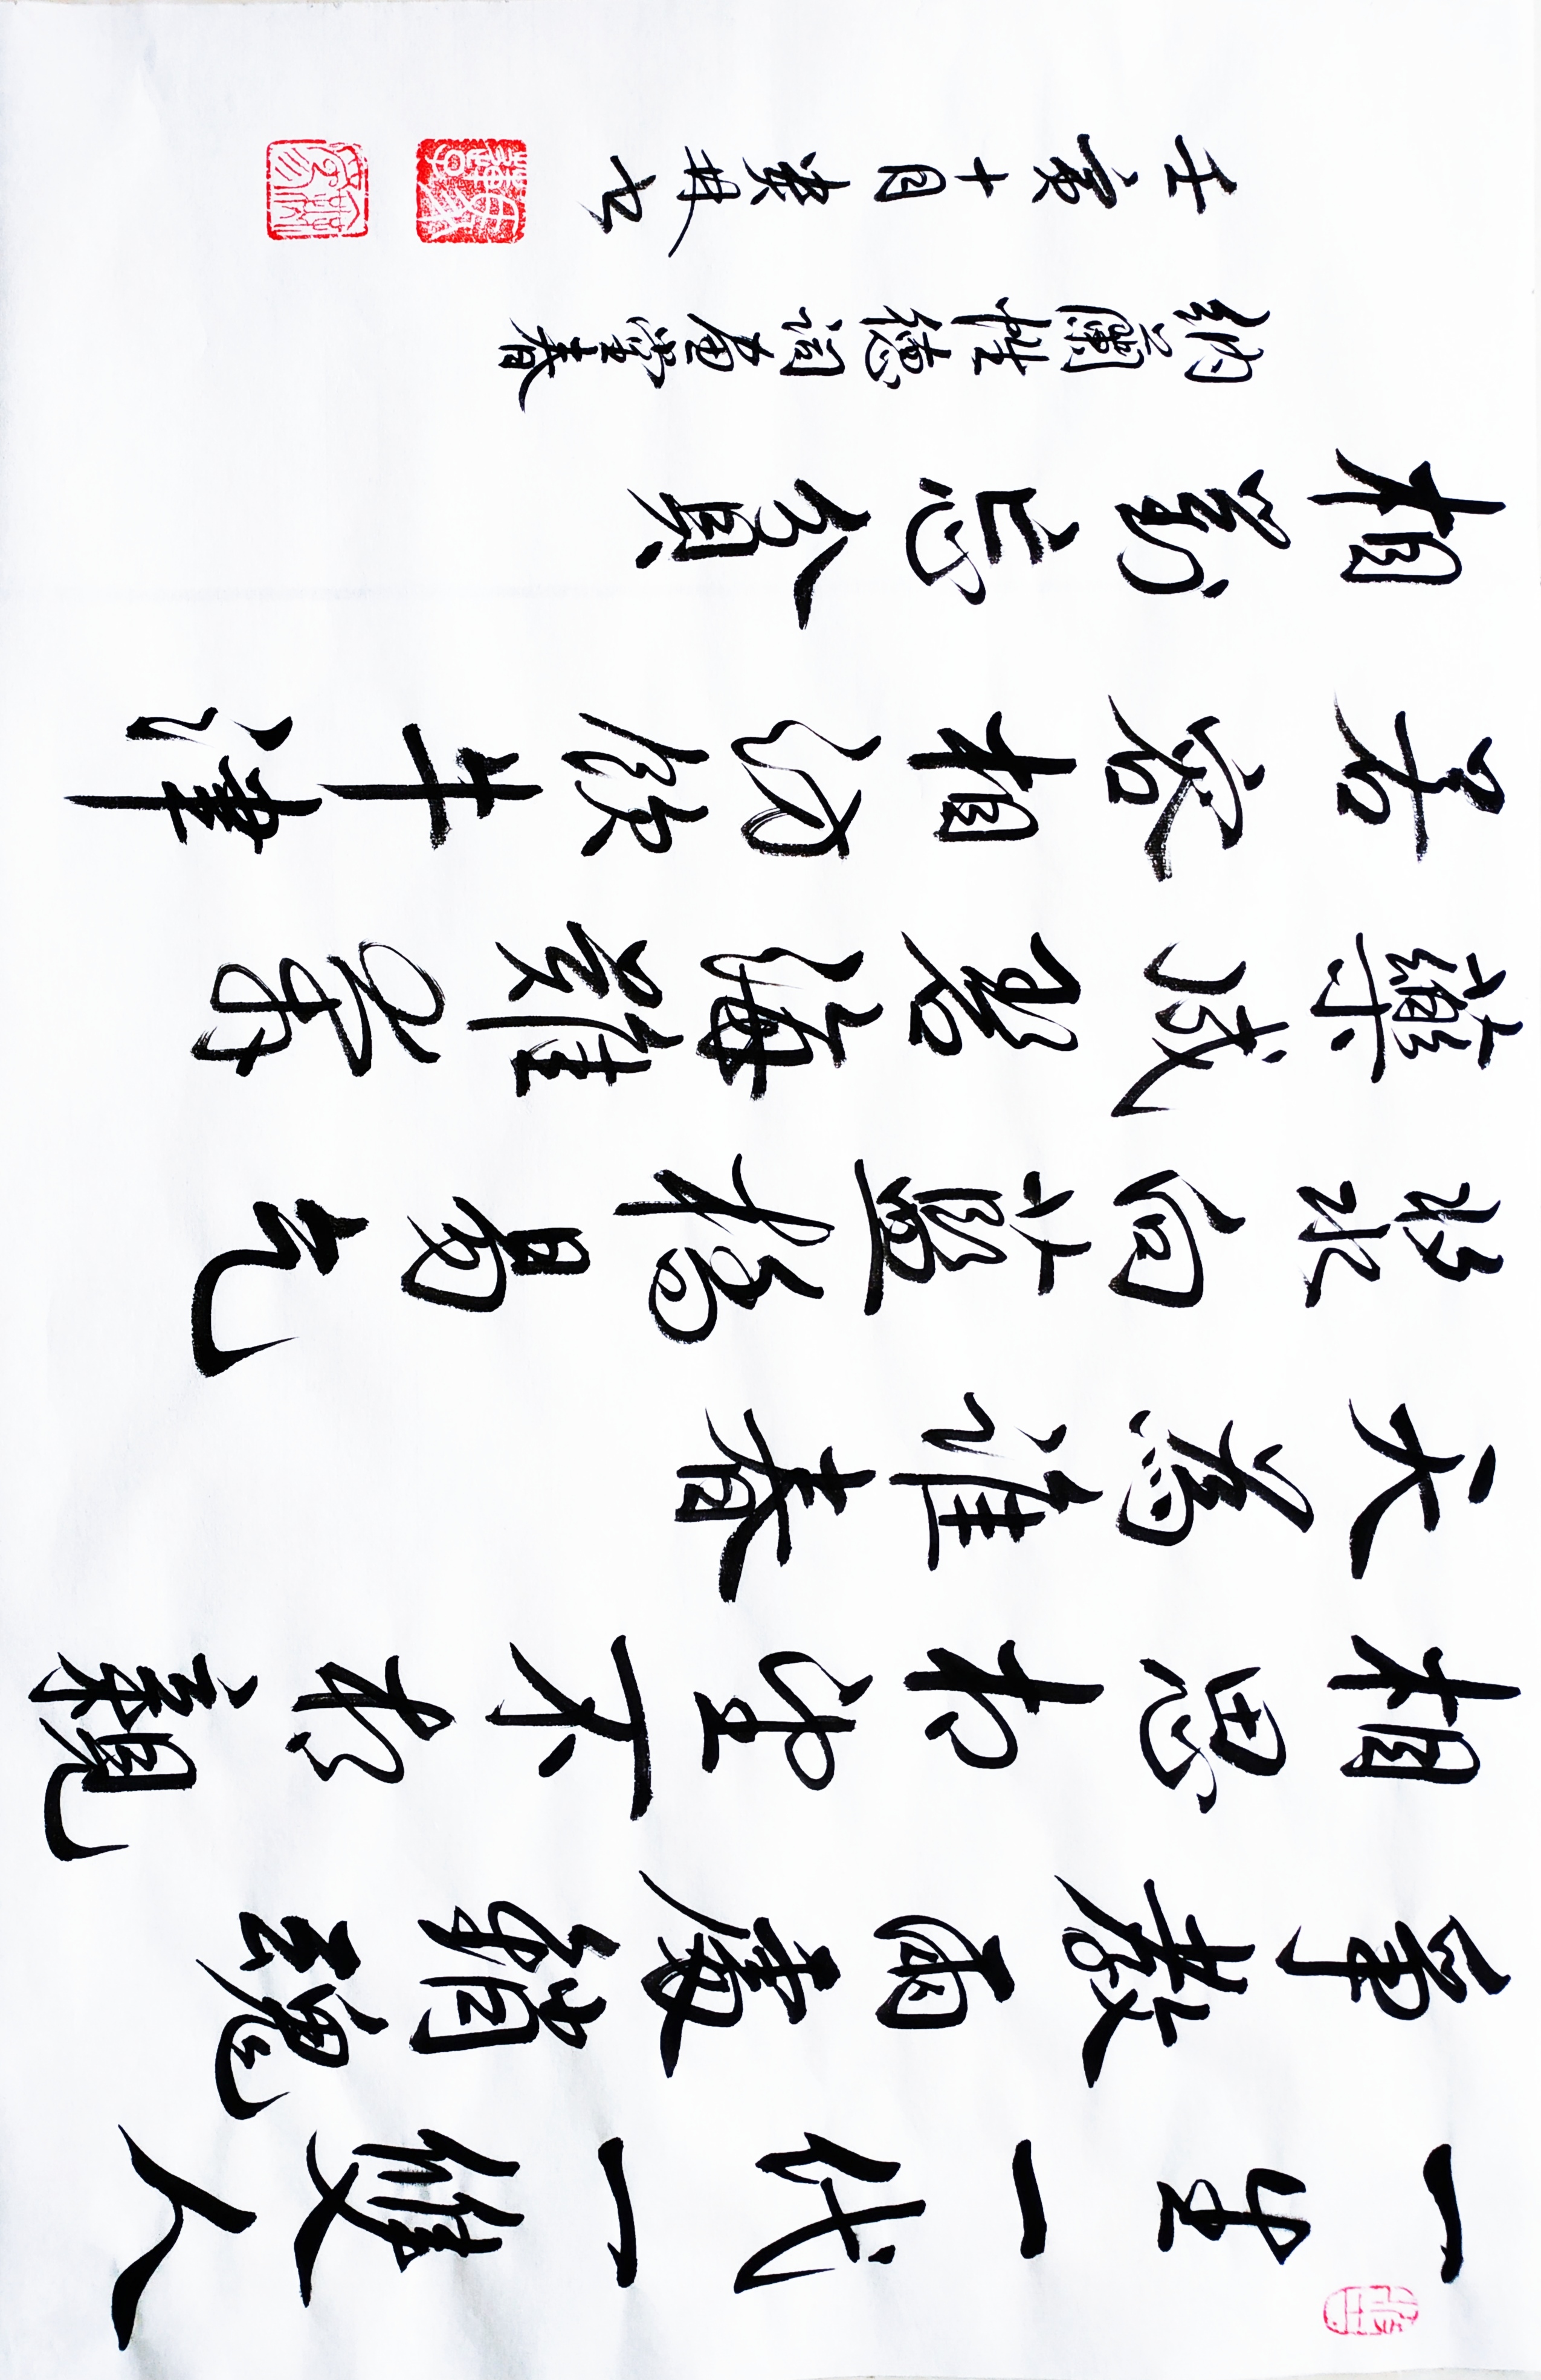 一生一代一雙人
爭教兩處銷魂
相思相望不相親
天為誰春
漿向藍橋易乞
藥成碧海難奔
若容相訪飲牛津
相對忘貧
納蘭性德詞畫堂春
壬寅十月